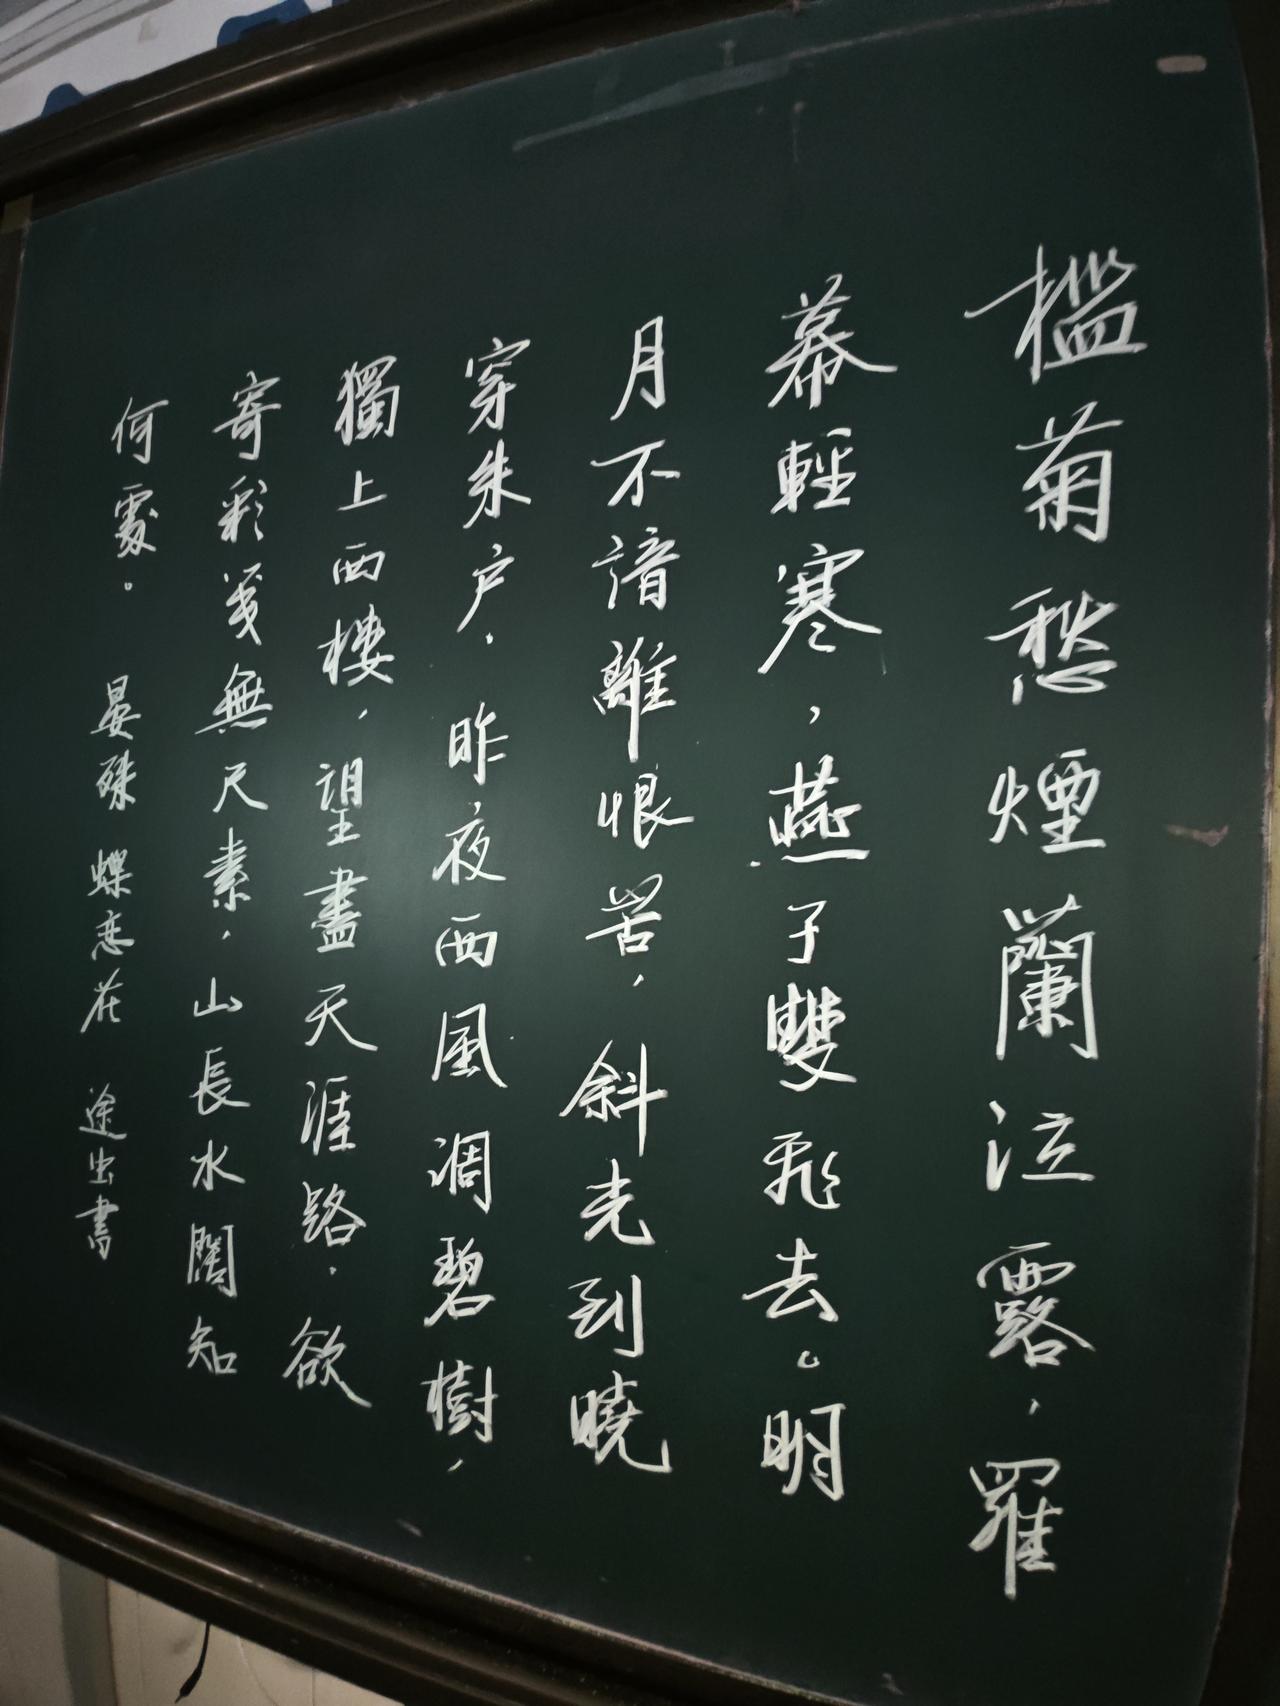 檻菊愁煙蘭泣露，羅
幕輕寒，燕子雙飛去。明
月不諳離恨苦，斜光到曉
穿朱户。昨夜西風凋碧樹，
獨上西樓，望盡天涯路。欲
寄彩箋無尺素，山長水闊知
何處。 晏殊 蝶恋花 途出書